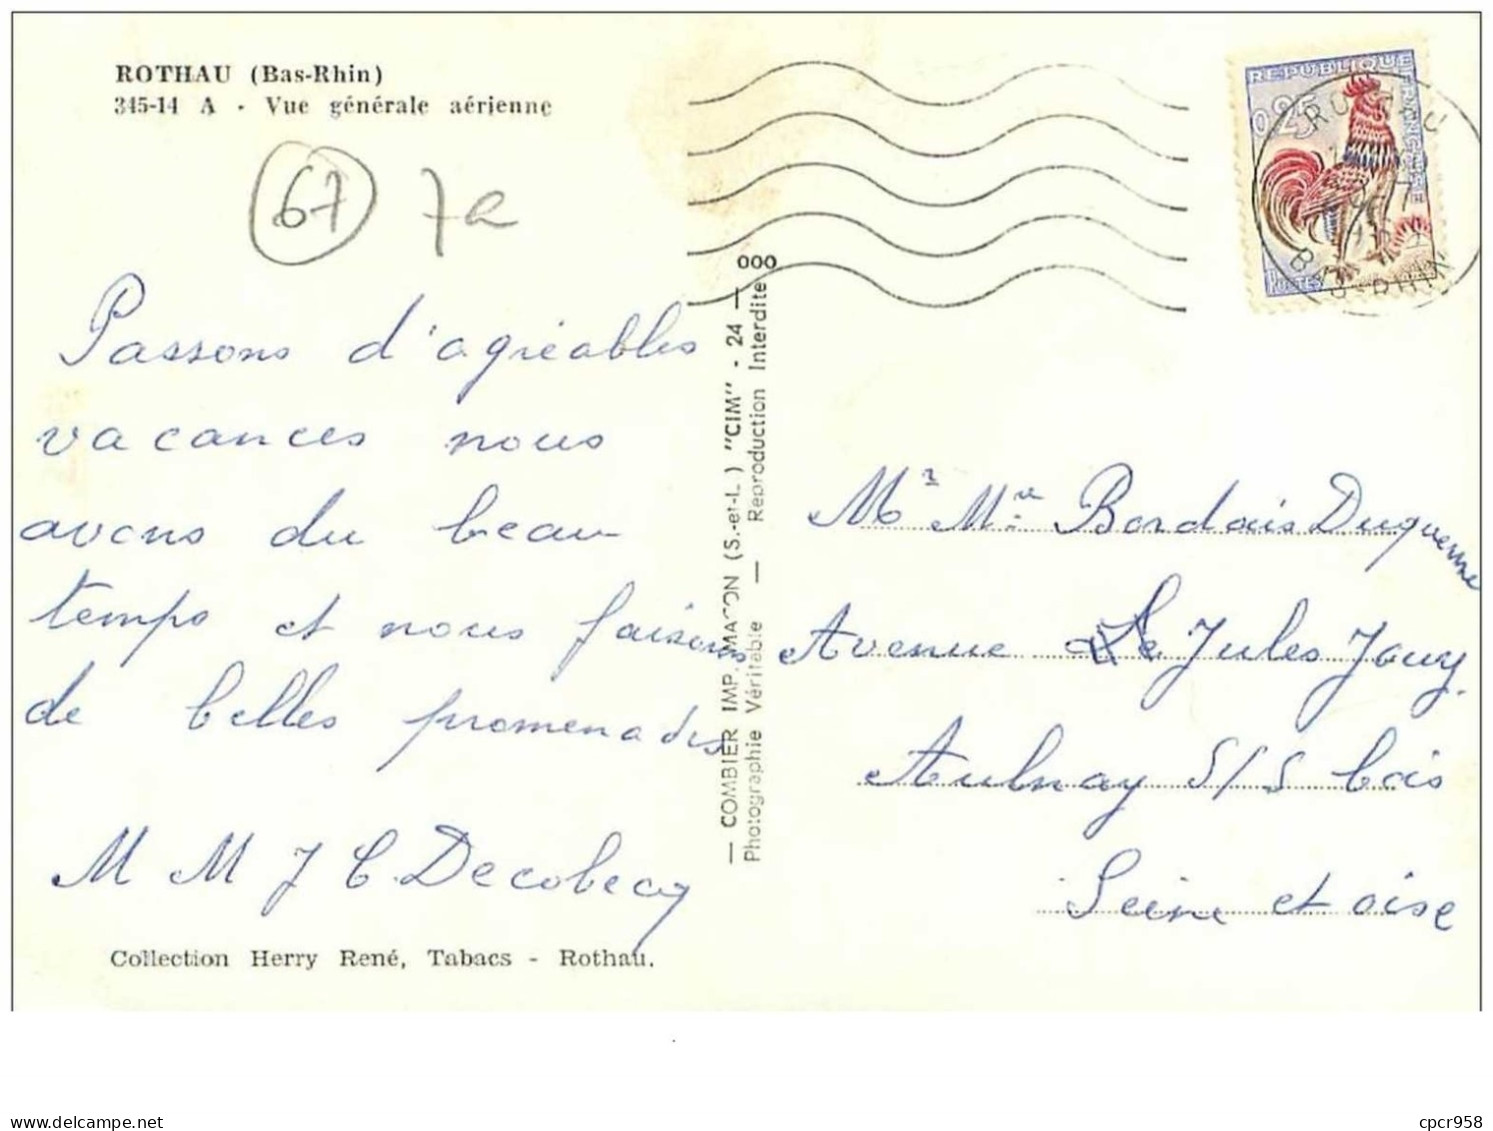 ROTHAU (Bas-Rhin)
345-14 A - Vue générale aérienne
67 7e
REPUBLIQUE
FRANÇAISE
0,25
POSTES
BAS-RHIN
Passons d'agréables
vacances nous
avons du beau
temps et nous faisons
de belles promenades
M M J C Decobecq
Collection Herry René, Tabacs - Rothau.
— COMBIER IMP. MACON (S.-et-L.) "CIM" - 24 — 000
Photographie Véritable — Reproduction Interdite
Mr Mme Bordais Duquenne
Avenue Jules Jouy.
Aulnay S/S bois
Seine et oise
cpcr958